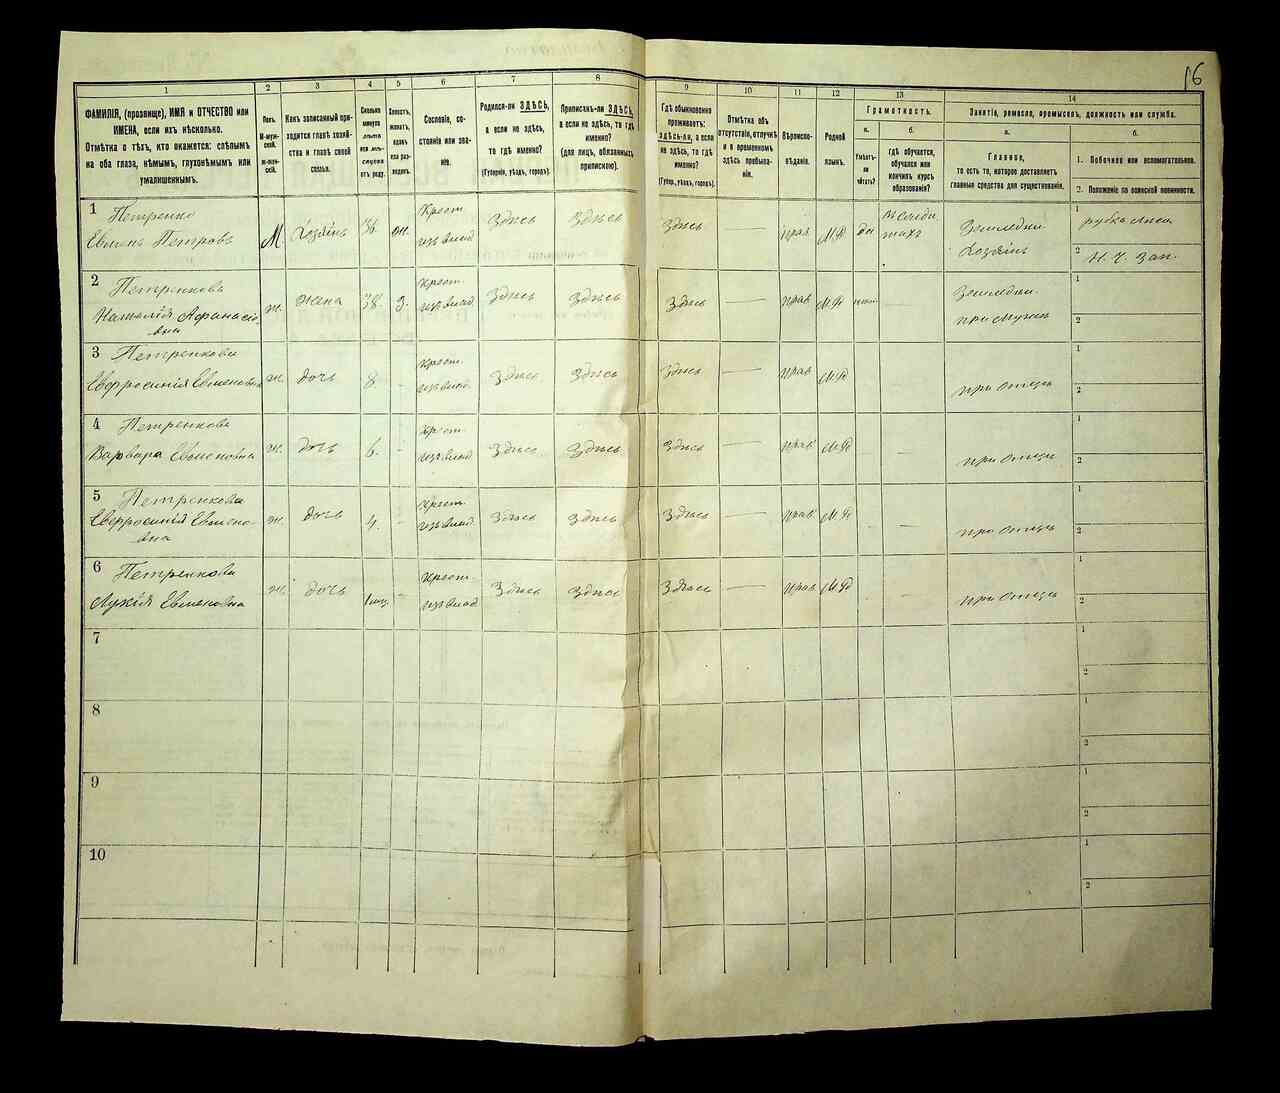 16
1 2 3 4 5 6 7 8 9 10 11 12 13 14
ФАМИЛІЯ, (прозвище), ИМЯ и ОТЧЕСТВО или
ИМЕНА, если ихъ нѣсколько.
Отмѣтка о тѣхъ, кто окажется: слѣпымъ
на оба глаза, нѣмымъ, глухонѣмымъ или
умалишеннымъ.
Полъ.
М-муж-
ской.
ж-жен-
скій.
Какъ записанный при-
ходится главѣ хозяй-
ства и главѣ своей
семьи.
Сколько
минуло
лѣтъ
или мѣ-
сяцевъ
отъ роду.
Холостъ,
женатъ,
вдовъ
или раз-
веденъ.
Сословіе, со-
стояніе или зва-
ніе.
Родился-ли ЗДѢСЬ,
а если не здѣсь,
то гдѣ именно?
(Губернія, уѣздъ, городъ).
Приписанъ-ли ЗДѢСЬ,
а если не здѣсь, то гдѣ
именно?
(для лицъ, обязанныхъ
припискою).
Гдѣ обыкновенно
проживаетъ:
ЗДѢСЬ-ли, а если
не здѣсь, то гдѣ
именно?
(Губер., уѣздъ, городъ).
Отмѣтка объ
отсутствіи, отлучкѣ
и о временномъ
здѣсь пребыва-
ніи.
Вѣроиспо-
вѣданіе.
Родной
языкъ.
Грамотность.
а.
Умѣетъ-
ли
читать?
б.
гдѣ обучается,
обучался или
кончилъ курсъ
образованія?
Занятіе, ремесло, промыселъ, должность или служба.
а.
Главное,
то есть то, которое доставляетъ
главныя средства для существованія.
б.
1. Побочное или вспомогательное.
2. Положеніе по воинской повинности.
1 Петренко
Евмень Петровъ М Хозяинъ 36 ж. Крест. Здѣсь Здѣсь Здѣсь — прав М.Р да
Земледѣл.
Хозяинъ
1 рубка лѣса
2 Н. Ч. Зап.
2 Петренкова
Наталія Афанасіе-
вна ж. жена 38. З. Крест. Здѣсь Здѣсь Здѣсь — прав М.Р нѣт —
Земледѣл.
при мужѣ
1
2
3 Петренкова
Евфросинія Евменовна ж. дочь 8 - Крест. Здѣсь Здѣсь Здѣсь — прав М.Р
при отцѣ
1
2
4 Петренкова
Варвара Евменовна ж. дочь 6. - Крест. Здѣсь Здѣсь Здѣсь — прав М.Р - —
при отцѣ
1
2
5 Петренкова
Евфросинія Евмено-
вна ж. дочь 4. - Крест. Здѣсь Здѣсь Здѣсь — прав М.Р - —
при отцѣ
1
2
6 Петренкова
Лукія Евменовна ж. дочь 1 - Крест. Здѣсь Здѣсь Здѣсь — прав М.Р - —
при отцѣ
1
2
7
1
2
8
1
2
9
1
2
10
1
2